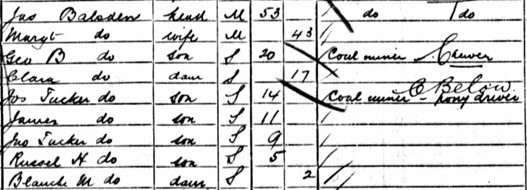 Jas Balsden head M 53 do do
Maryt do wife M 43
Geo B do son S 20 Coal miner Hewer
Clara do daur S 17
Jos Tucker do son S 14 Coal miner - Pony driver C Below
James do son S 11
Jno Tucker do son S 9
Russel H do son S 5
Blanche M do daur S 2